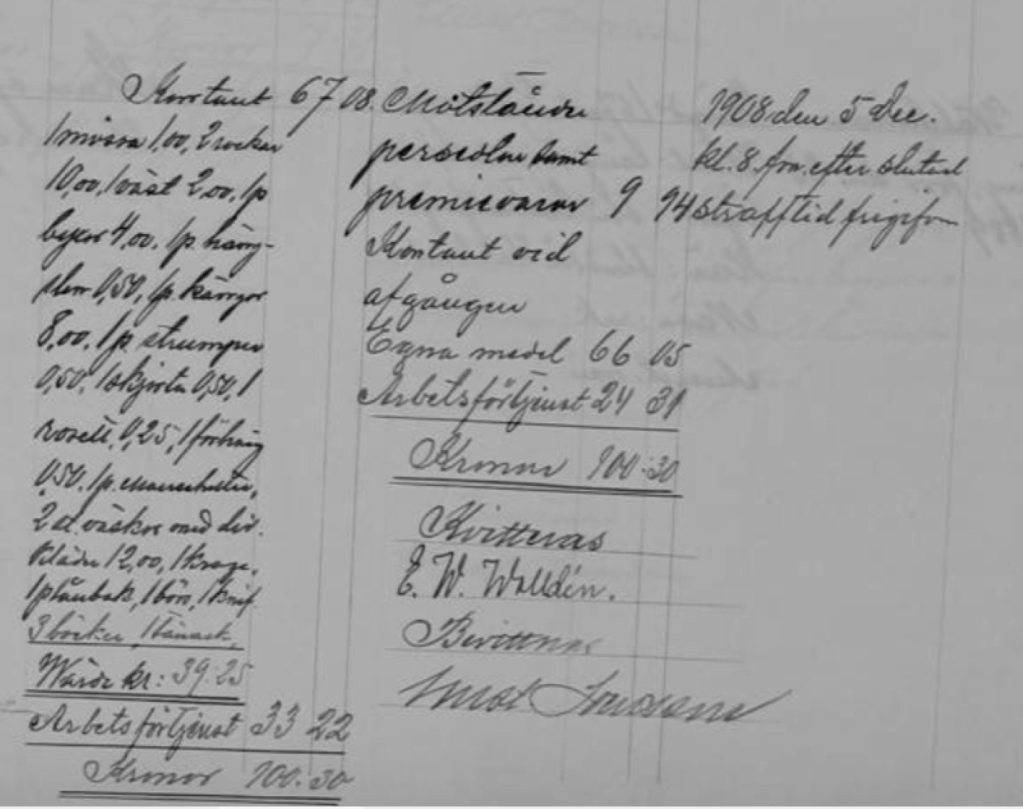 Kontant 67 08.
1 mössa 1,00, 2 rockar
10,00, 1 väst 2,00, 1 p
byxor 4,00, 1 p. häng-
slen 0,50, 1 p. kängor
8,00, 1 p. strumpor
0,50, 1 skjorta 0,50, 1
rosett 0,25, 1 förhäng
0,50, 1 p. manschetter,
2 st. väskor med div.
kläder 12,00, 1 krage,
1 plånbok, 1 börs, 1 knif
3 böcker,
Värde kr: 39:25
Arbetsförtjenst 33 22
Kronor 100.30
Motstående
persedlar samt
premievaror 9 94
Kontant vid
afgången
Egna medel 66 05
Arbetsförtjenst 24 31
Kronor 100:30
Kvitteras
E. W. Walldén.
Bevittnas
1908 den 5 Dec.
kl. 8 f.m. efter slutad
strafftid frigifven